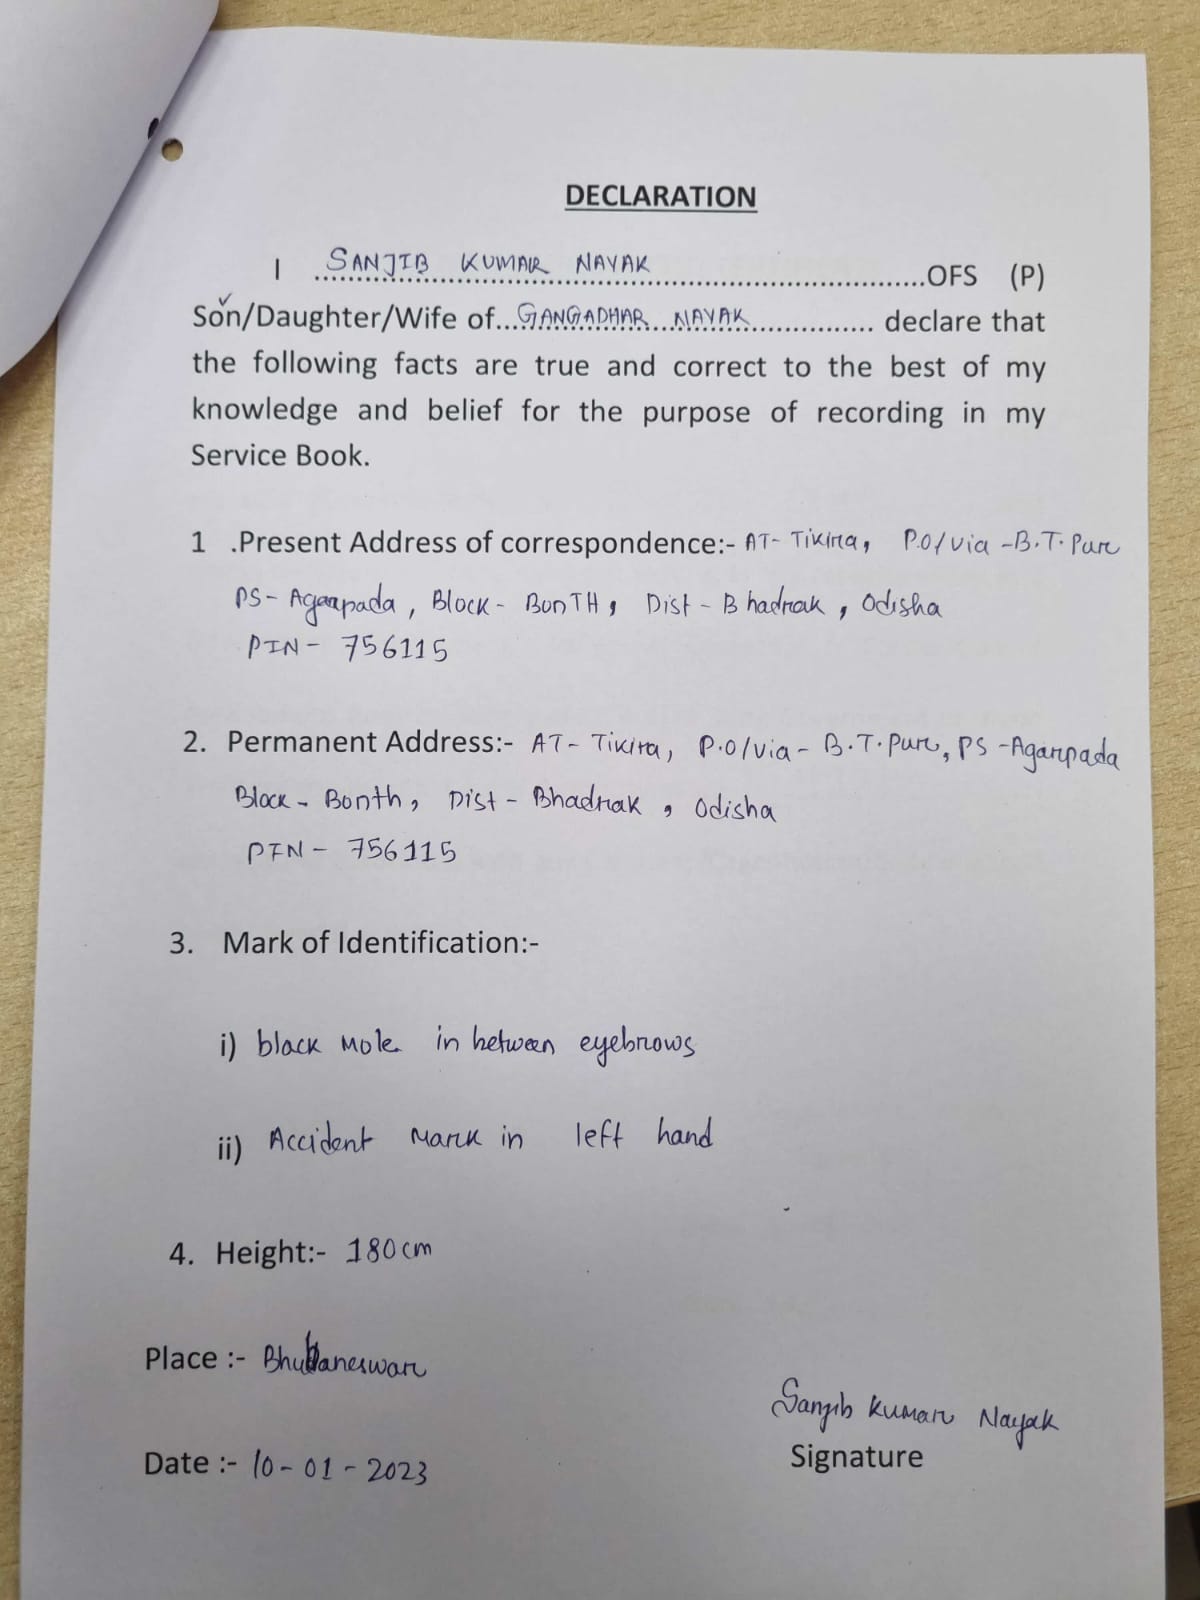 DECLARATION
I SANJIB KUMAR NAYAK OFS (P)
Son/Daughter/Wife of...GANGADHAR NAYAK............... declare that
the following facts are true and correct to the best of my
knowledge and belief for the purpose of recording in my
Service Book.
1 .Present Address of correspondence:- AT- Tikira, P.O/via -B.T. Pur
PS- Agarpada, Block - BonTH, Dist - Bhadrak, Odisha
PIN - 756115
2. Permanent Address:- AT- Tikira, P.O/via - B.T. Pur, PS -Agarpada
Block - Bonth, Dist - Bhadrak, Odisha
PIN - 756115
3. Mark of Identification:-
i) black mole in between eyebrows
ii) Accident mark in left hand
4. Height:- 180cm
Place :- Bhubaneswar
Sanjib Kumar Nayak
Signature
Date :- 10-01-2023